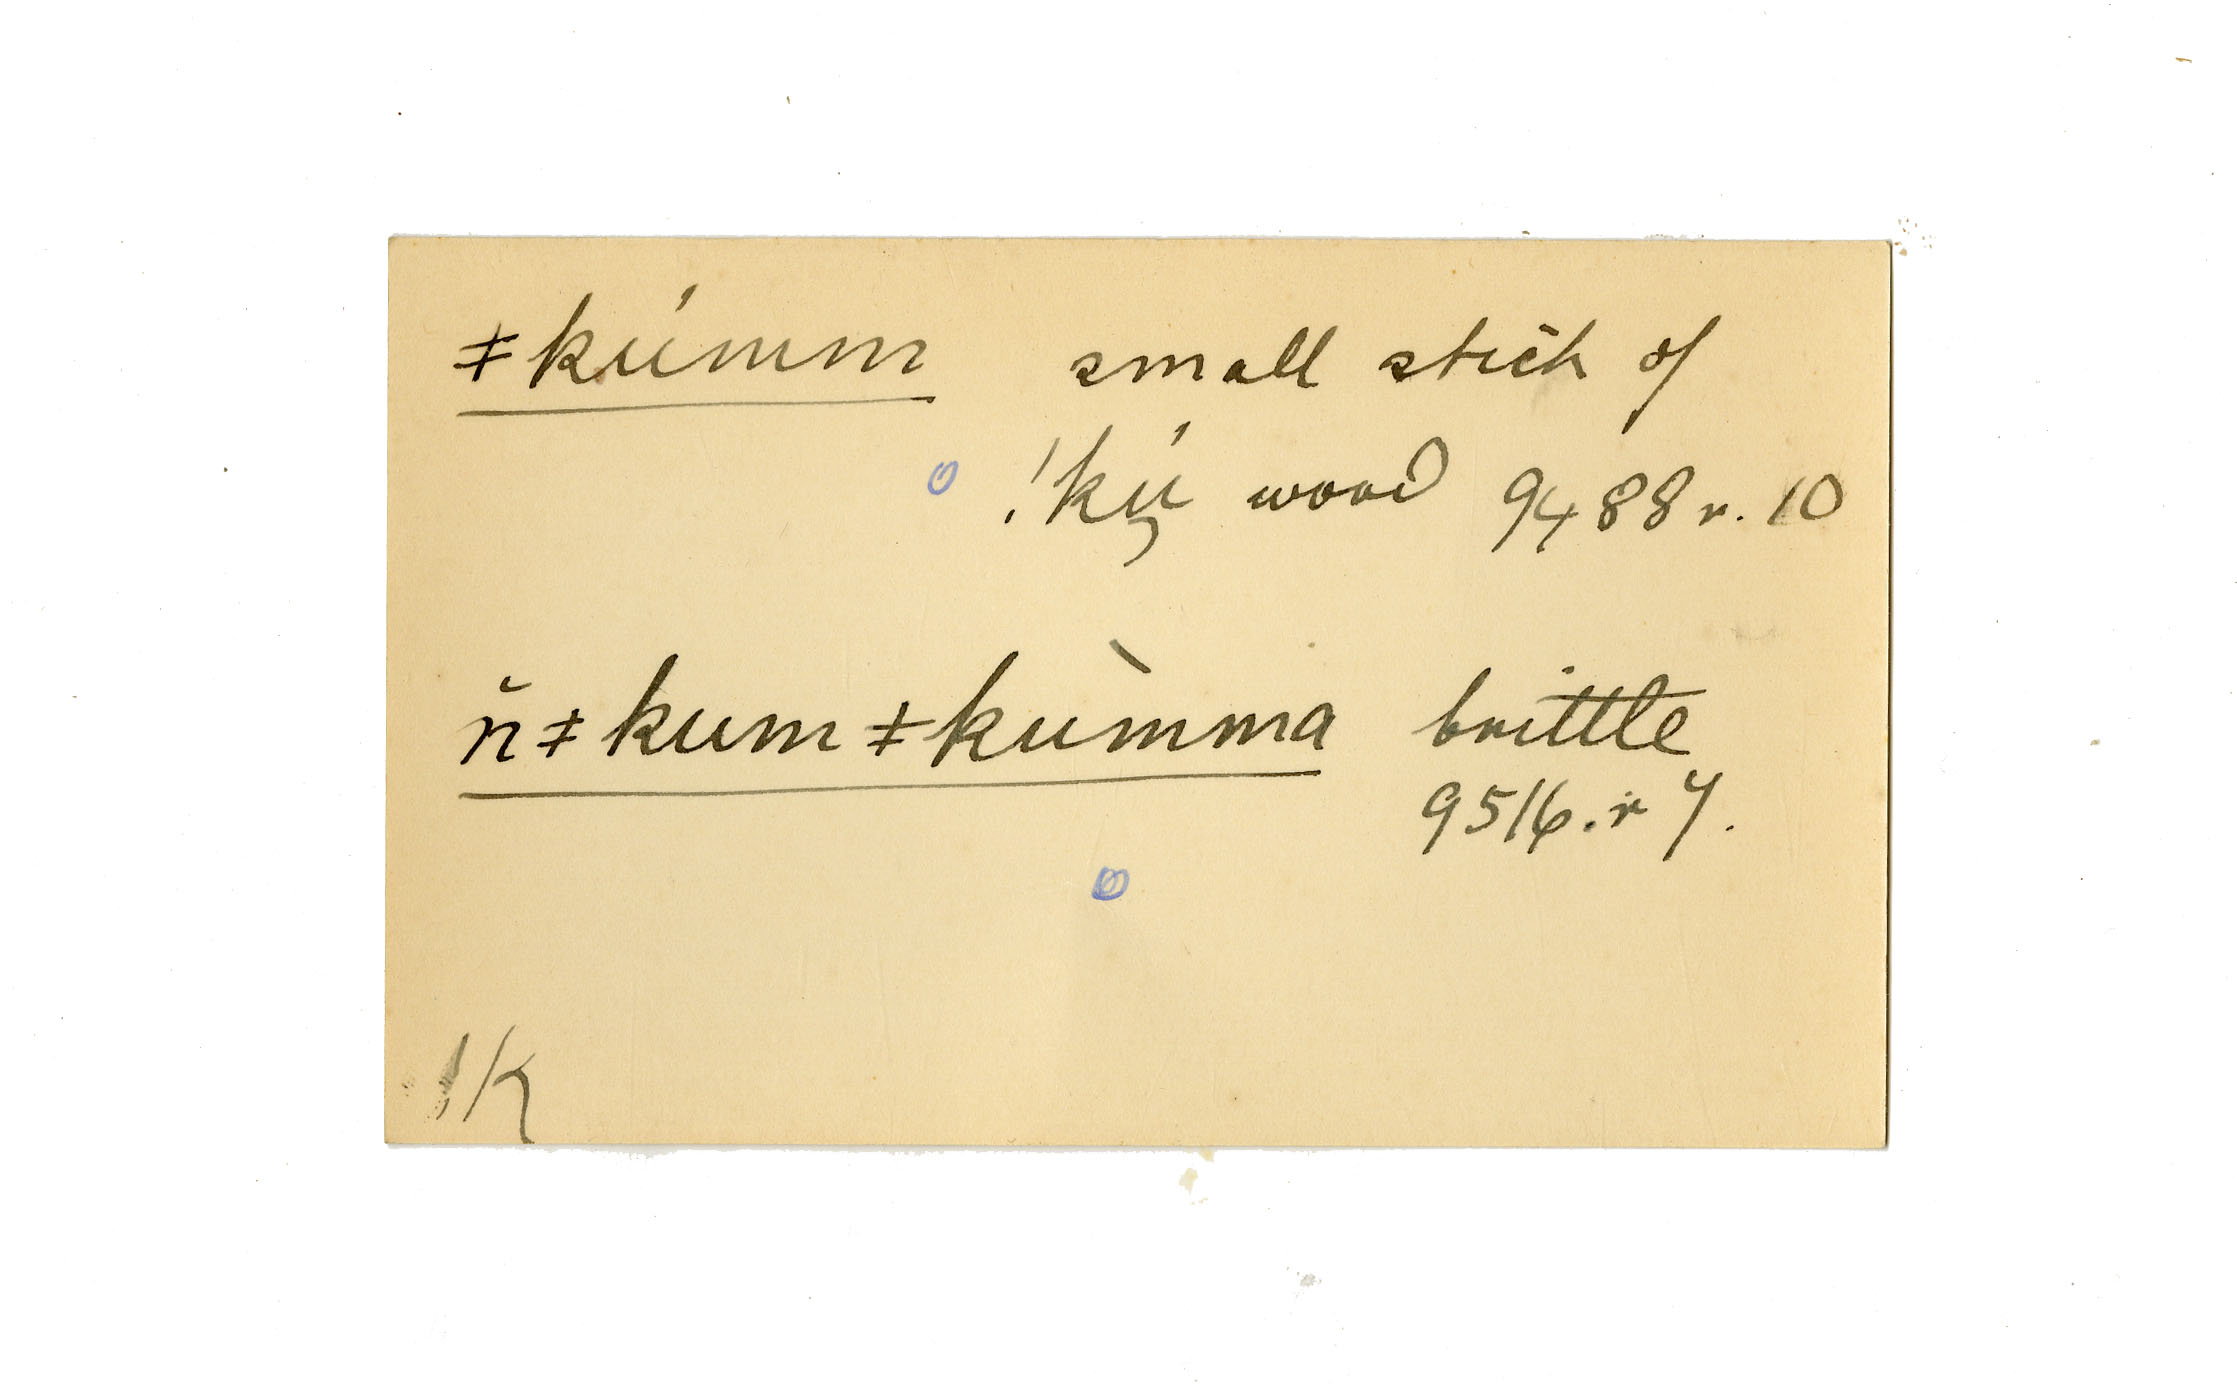 ǂkúmm small stick of
!kṵ́ wood 9488 r. 10
n̆ǂkumǂkùmma brittle
9516. r 7.
!K